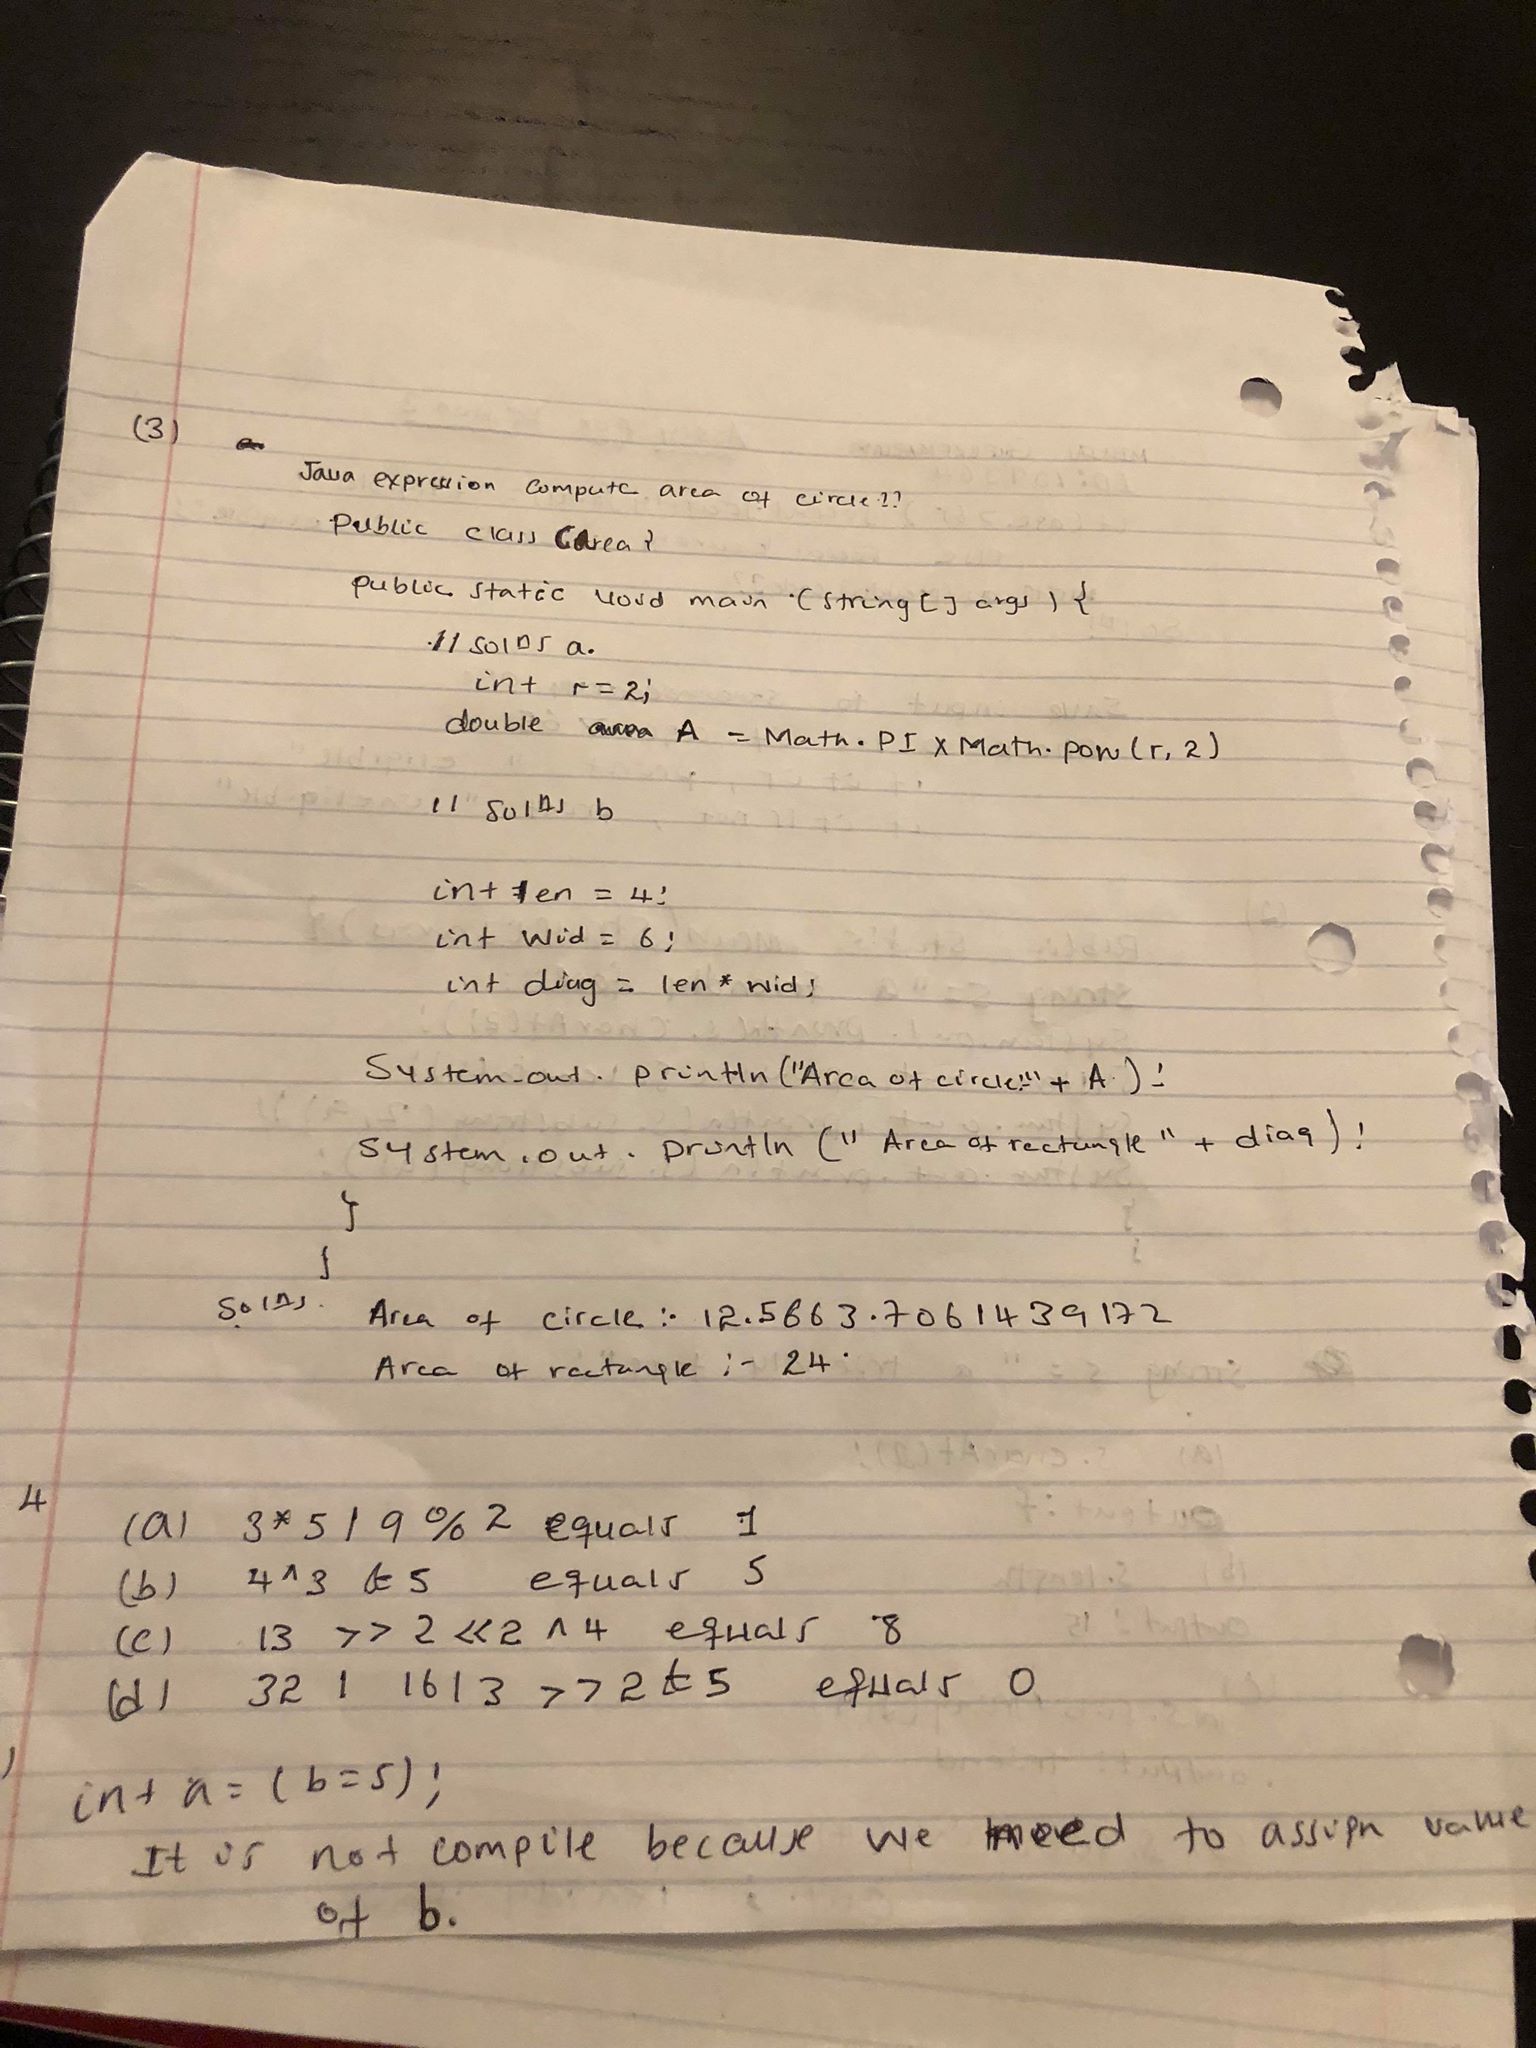 (3)
Java expression compute area of circle??
Public class CArea {
public static void main (string[] args) {
// solns a.
int r = 2;
double A = Math.PI x Math.pow(r, 2)
// solns b
int len = 4;
int wid = 6;
int diag = len * wid;
System.out.println("Area of circle:" + A);
System.out.println("Area of rectangle" + diag);
}
}
Solns. Area of circle :- 12.5663.7061439172
Area of rectangle :- 24.
4
(a) 3*5/9%2 equals 1
(b) 4^3 & 5 equals 5
(c) 13 >> 2 << 2 ^ 4 equals 8
(d) 32 | 16 | 3 >> 2 & 5 equals 0
int a = (b=5);
It is not compile because we need to assign value
of b.